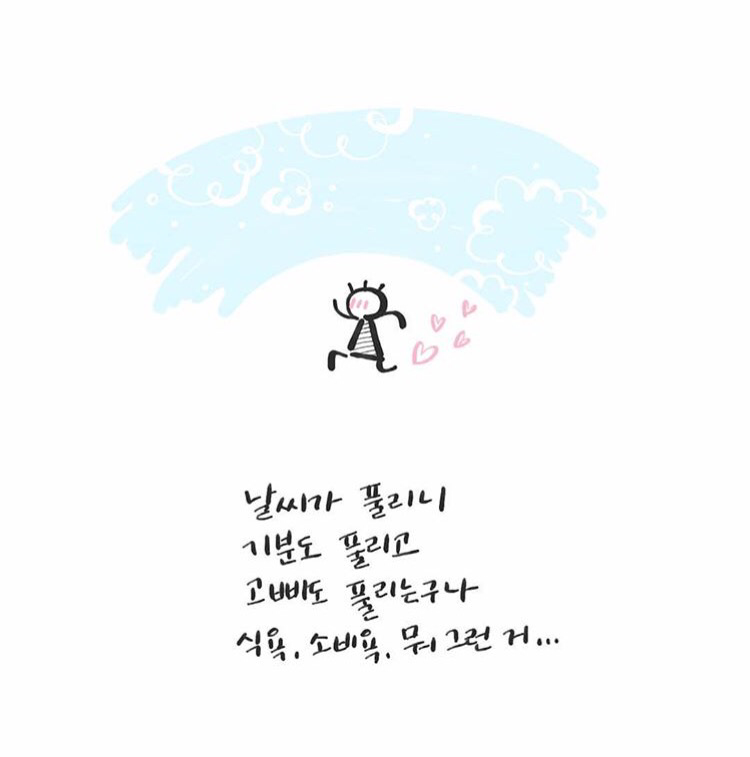 날씨가 풀리니
기분도 풀리고
고삐도 풀리는구나
식욕, 소비욕, 뭐 그런 거...